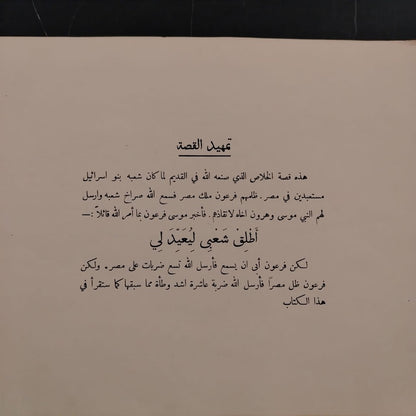 تمهيد القصة
هذه قصة الخلاص الذي صنعه الله في القديم لما كان شعبه بنو اسرائيل
مستعبدين في مصر. ظلمهم فرعون ملك مصر فسمع الله صراخ شعبه وارسل
لهم النبي موسى وهرون اخاه لانقاذهم. فأخبر موسى فرعون بما أمر الله قائلاً :—
أَطْلِقْ شَعْبِي لِيُعَيِّدَ لِي
لكن فرعون أبى ان يسمع فأرسل الله تسع ضربات على مصر. ولكن
فرعون ظل مصرًا فأرسل الله ضربة عاشرة اشد وطأة مما سبقها كما ستقرأ في
هذا الكتاب